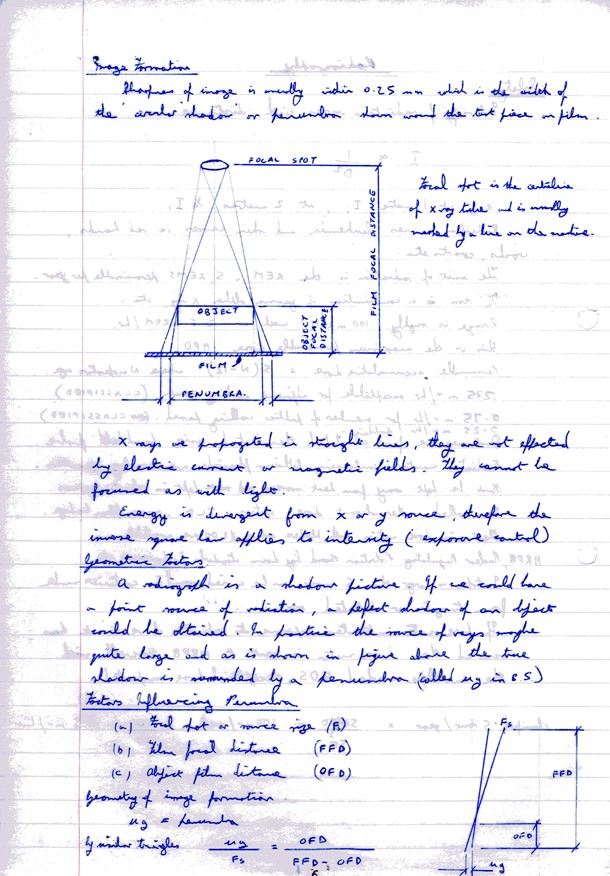 Image Formation
Sharpness of image is usually within 0.25 mm which is the width of
the 'circular' shadow' or penumbra shown around the test piece on film.
FOCAL SPOT
Focal spot is the centreline
of x ray tube and is usually
marked by a line on the machine.
FILM FOCAL DISTANCE
OBJECT
OBJECT FOCAL DISTANCE
FILM
PENUMBRA.
X rays are propogated in straight lines, they are not effected
by electric current or magnetic fields. They cannot be
focused as with light.
Energy is divergent from x or γ source, therefore the
inverse square law applies to intensity (exposure control)
Geometric Factors
A radiograph is a shadow picture. If we could have
a point source of radiation, a pefect shadow of an object
could be obtained. In practice the source of rays maybe
quite large and as is shown in figure above the true
shadow is surrounded by a penumbra (called ug in B.S)
Factors Influencing Penumbra
(a) Focal spot or source size (Fs)
(b) Film focal distance (FFD)
(c) Object film distance (OFD)
Geometry of image formation.
ug = Penumbra
by similar triangles ug / Fs = OFD / FFD - OFD
Fs
FFD
OFD
ug
6